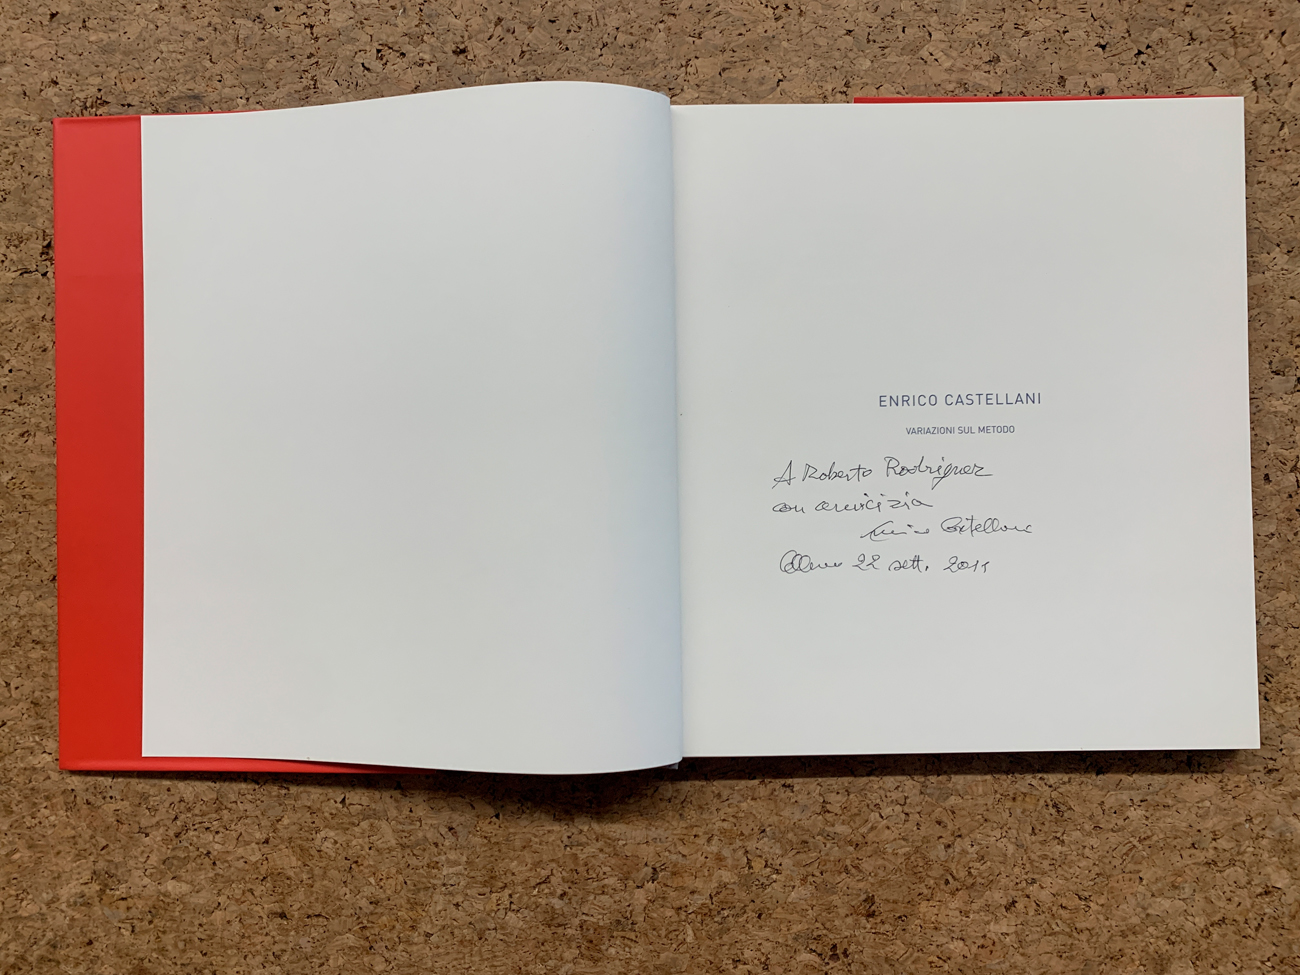 ENRICO CASTELLANI
VARIAZIONI SUL METODO
A Roberto Rodriguez
con amicizia
Enrico Castellani
22 sett. 2011